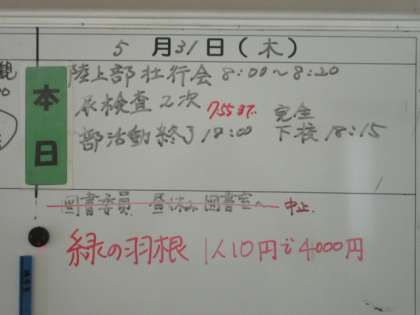 5月31日(木)
本日
陸上部壮行会 8:00~8:20
尿検査2次
部活動終了 18:00 完全下校 18:15
図書委員 昼休み 図書室へ 中止
緑の羽根 1人10円で4000円